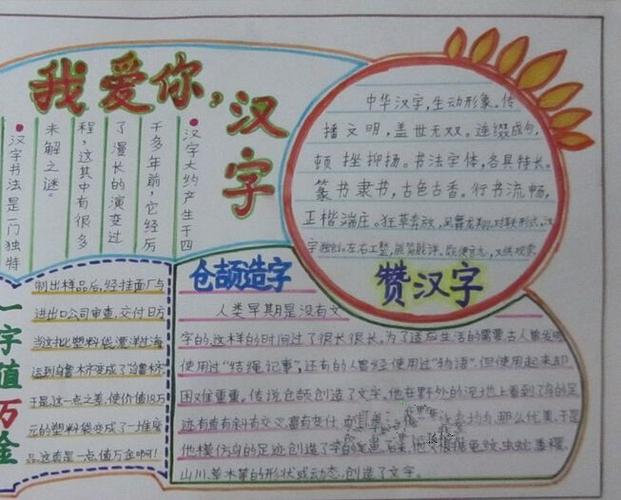 我爱你,汉字
汉字大约产生于四
千多年前,它经历
了漫长的演变过
程,这其中有很多
未解之谜。
汉字书法是一门独特
中华汉字,生动形象。传
播文明,盖世无双。连缀成句,
顿挫抑扬。书法字体,各具特长。
篆书隶书,古色古香。行书流畅,
正楷端庄。狂草奔放,凤舞龙翔。对联形式,汉
字独创。左右工整,
赞汉字
一字值万金
制出样品后,经挂面厂与
进出口公司审查,交付日方
当这批塑料袋漂洋过海
运到乌鲁木齐变成了鸟鲁木齐
于是这一点之差,使价值18万
元的塑料袋变成了一堆废
品。这真是一点值万金啊!
仓颉造字
人类早期是没有文
字的,这样的时间过了很长很长,为了适应生活的需要古人曾发明
使用过"结绳记事",还有的人曾经使用过"物语",但使用起来却
困难重重。传说仓颉创造了文字。他在野外的泥地上看到了鸟的足
迹有直有斜有交叉,那么优美,于是
他模仿鸟的足迹创造了
山川、草木等的形状或动态,创造了文字。